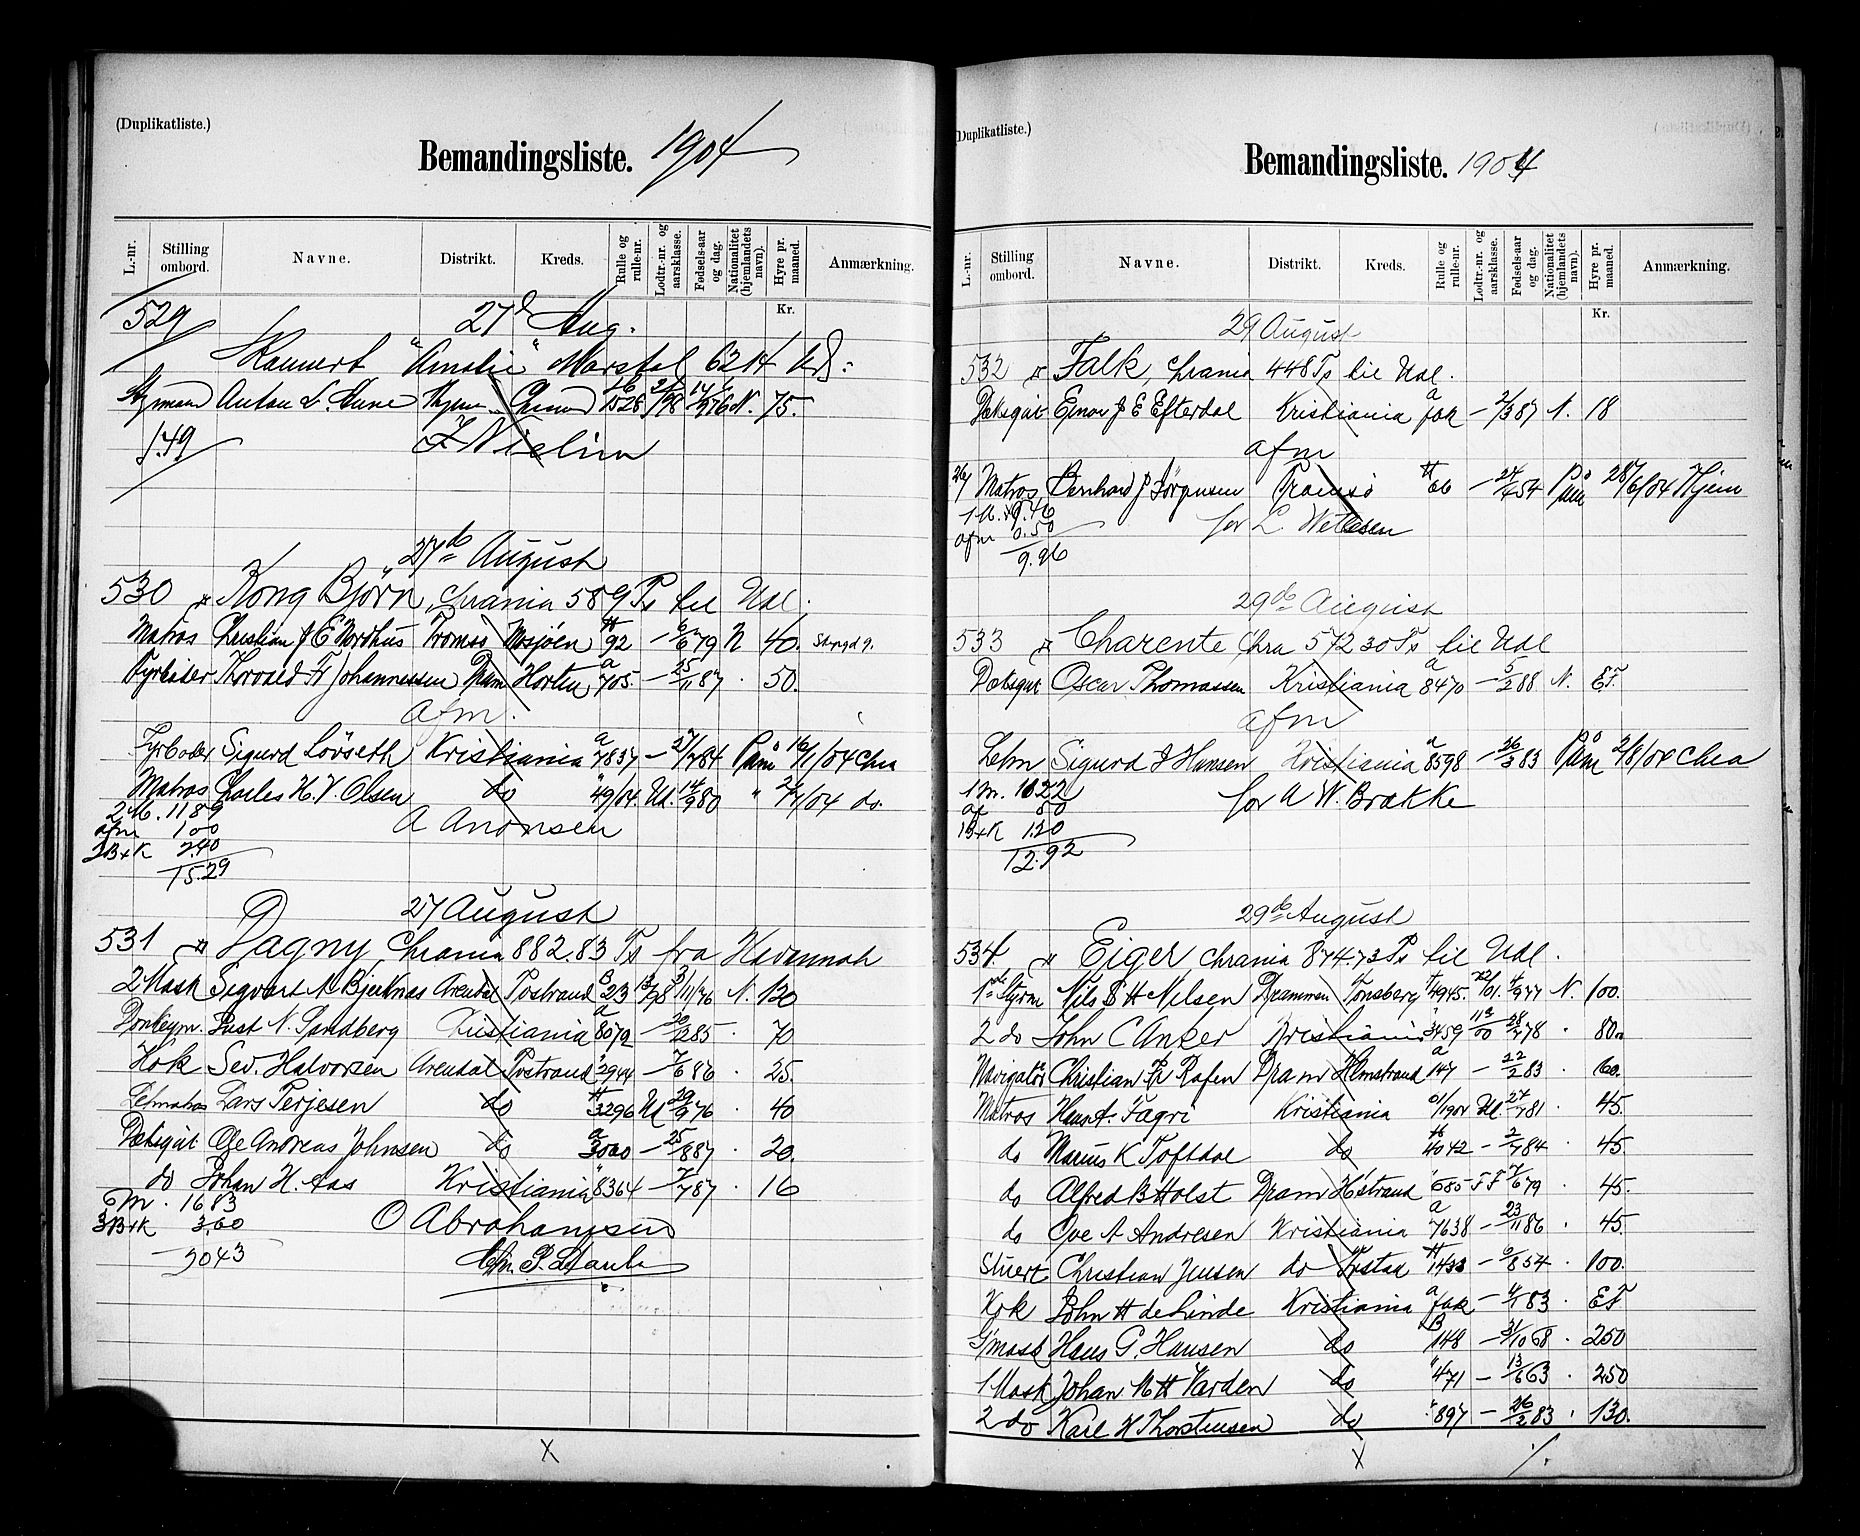 (Duplikatliste.)
Bemandingsliste. 1904
L.-nr. Stilling ombord. Navne. Distrikt. Kreds. Rulle og rulle-nr. Lodtr.-nr. og aarsklasse. Fødsels-aar og dag. Nationalitet (hjemlandets navn). Hyre pr. maaned. Anmærkning.
Kr.
529 27d Aug.
"Amalie" Marstal 62 14
Anton L. N. 75.
1.49
27de August
530 Kong Bjørn, Chrania 589 Ts til Udl.
Matros Christian J E Nordhus Tromsø Mosjøen H 92 – 6/6 79 N 40.
Fyrbøder Thorvald Fr Johannessen Dram Horten a 705. – 25/11 87 . 50.
afm.
Fyrbøder Sigurd Lövseth Kristiania a 7837 – 27/7 84 Paam 16/1/04 Chra
Matros Charles H. V. Olsen do " 49/04 Ud. 14/9 80 " 2/7/04 do.
2 M. 11 89
afm 1 00
2 B+K 2.40
15.29
A Anonsen
27 August
531 Dagny, Chrania 882.83 Ts fra Havannah
2 Mask Sigvart A Bjerknas Arendal Tostrand B 23 13/98 3/11/76 N. 120
Donkeym. Just N. Sandberg Kristiania a 8079 – 20/2 85 . 70
Kok Sev. Halvorsen Arendal Tostrand " 2944 – 7/6 86 . 25.
Letmatros Lars Terjesen do H 3296 Ud 29/9 76 . 40
Dæksgut Ole Andreas Johnsen do a 3000 – 25/8 87 . 20.
do Johan H. Aas Kristiania " 8364 – 7/7 87 . 16
M. 16 83
3 B+K 3.60
20 43
O Abrahamsen
(Duplikatliste.)
Bemandingsliste. 1904
L.-nr. Stilling ombord. Navne. Distrikt. Kreds. Rulle og rulle-nr. Lodtr.-nr. og aarsklasse. Fødsels-aar og dag. Nationalitet (hjemlandets navn). Hyre pr. maaned. Anmærkning.
Kr.
29 August
532 Falk, Chrania 448 Ts til Udl.
Dæksgut Einar J E Efterdal Kristiania a fok – 2/3 87 N. 18
afm
26/ Matros Bernhard J Jörgensen Tromsö H 66 – 24/4 54 Paam 28/6/04 Hjem
1 M. 9.46
afm 0.50
9.96
for L Wetlesen
29de August
533 Charente Chra 572 30 Ts til Udl
Dæksgut Oscar Thomassen Kristiania a 8470 – 5/2 88 N. EF.
afm
Letm Sigurd J Hansen Kristiania a 8598 – 26/3 83 Paam 2/8/04 Chra
1 M. 10 22
af 50
1 B+K 1.20
12.92
for A W. Brække
29de August
534 Eiger Chrania 874.73 Ts til Udl.
1ste Styrm Nils B H Nilsen Drammen Tønsberg H 4945. 72/01. 4/9 77 N. 100.
2 do John C Anker Kristiania " 3459 113/00 28/7 78 . 80
Navigatör Christian Fr Rafen Dram Holmstrand a 147 – 22/2 83 . 60.
Matros Hans A. Fagri Kristiania 01/1904 Ud 27/7 81 . 45.
do Marius K Toftdal do H 4042 – 2/7 84 . 45.
do Alfred B Holst Dram Hstrand " 685 F F 7/6 79 . 45.
do Ove A Andresen Kristiania a 7638 – 23/11 86 . 45.
Stuert Christian Jensen do H 1433 – 6/8 54 . 100.
Kok John H de Linde Kristiania a fok – 4/1 83 . EF
G/mask Hans G. Hansen do B 148 – 31/10 68 . 250
1 Mask Johan M H Varden do " 471 – 13/6 63 . 250
2 do Karl H Thorstensen do " 897 – 26/2 83 . 130.